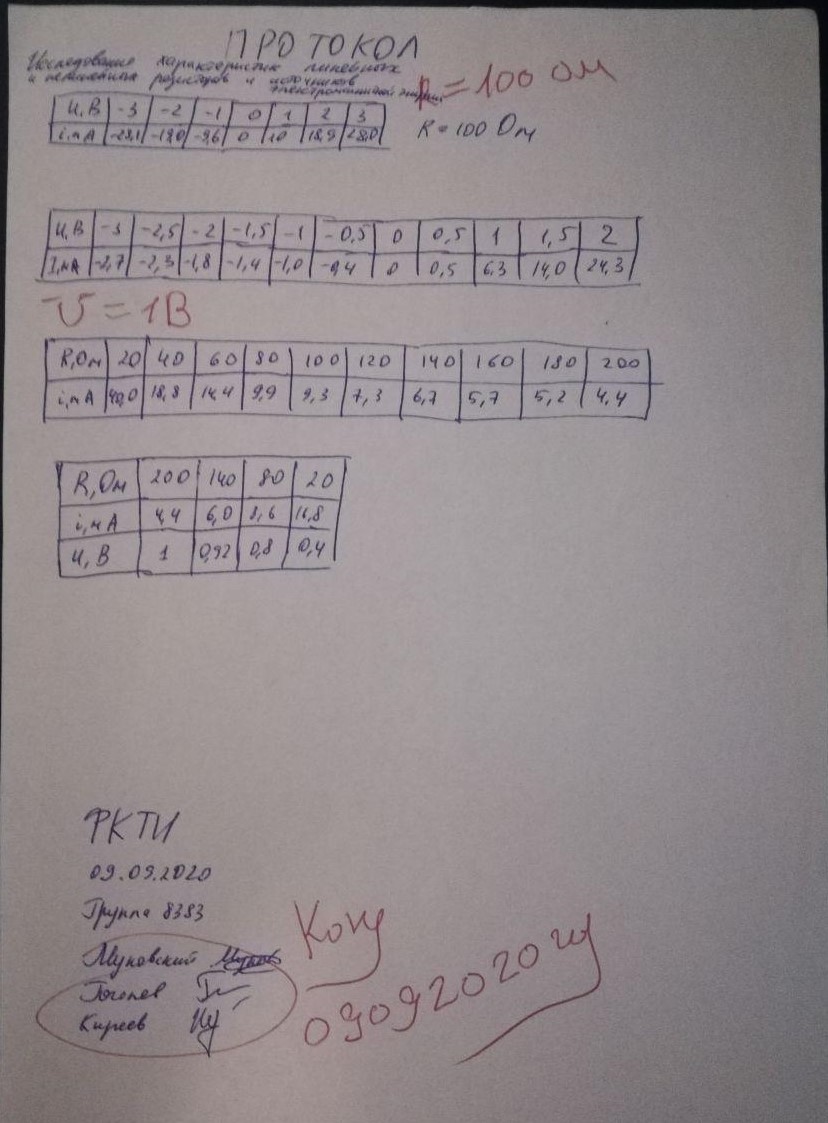 ПРОТОКОЛ
Исследование характеристик линейных
и нелинейных резисторов и источников
электромагнитной энергии
R = 100 Ом
R = 100 Ом
U, В -3 -2 -1 0 1 2 3
i, мА -28,1 -19,0 -9,6 0 10 18,9 28,0
U, В -3 -2,5 -2 -1,5 -1 -0,5 0 0,5 1 1,5 2
I, мА -2,7 -2,3 -1,8 -1,4 -1,0 -0,4 0 0,5 6,3 14,0 24,3
U = 1В
R, Ом 20 40 60 80 100 120 140 160 180 200
i, мА 40,0 18,8 14,4 9,9 9,3 7,3 6,7 5,7 5,2 4,4
R, Ом 200 140 80 20
i, мА 4,4 6,0 8,6 16,8
U, В 1 0,92 0,8 0,4
ФКТИ
09.09.2020
Группа 8383
Муковский
Гоголев
Киреев
09092020